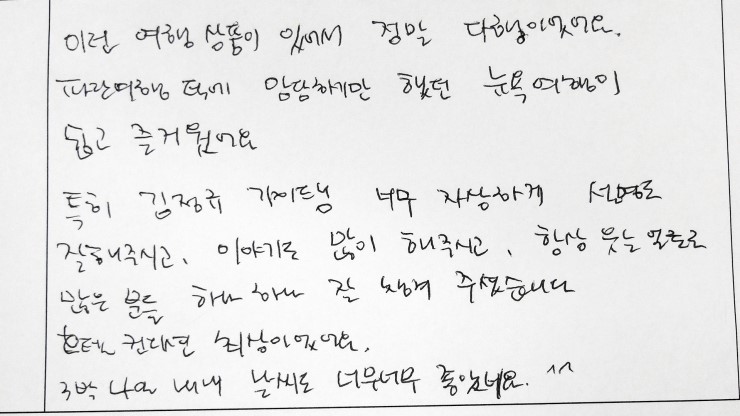 이런 여행 상품이 있어서 정말 다행이었어요.
파란여행 덕에 암담하기만 했던 뉴욕여행이
쉽고 즐거웠어요
특히 김정규 가이드님 너무 자상하게 설명도
잘해주시고, 이야기도 많이 해주시고, 항상 웃는 얼굴로
많은 분들 하나 하나 잘 챙겨 주셨습니다
호텔 컨디션 최상이었어요.
3박 4일 내내 날씨도 너무너무 좋았네요. ^^